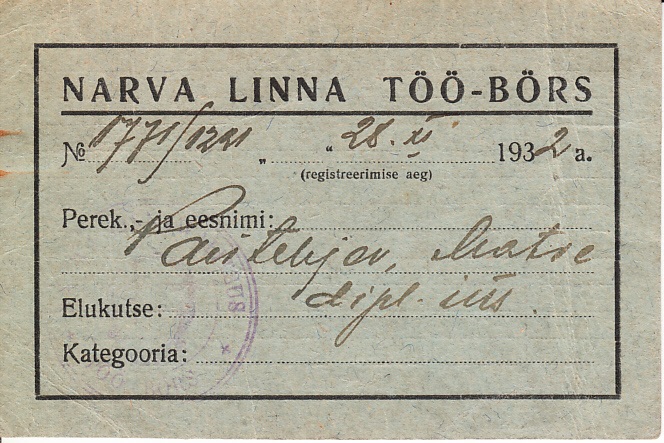 NARVA LINNA TÖÖ-BÖRS
№ 1771/1221 „ “ 28. XI. 1932 a.
(registreerimise aeg)
Perek.,- ja eesnimi:
dipl. ins.
Elukutse:
Kategooria: